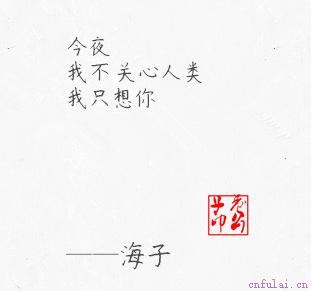 今夜
我不关心人类
我只想你
——海子
cnfulai.cn